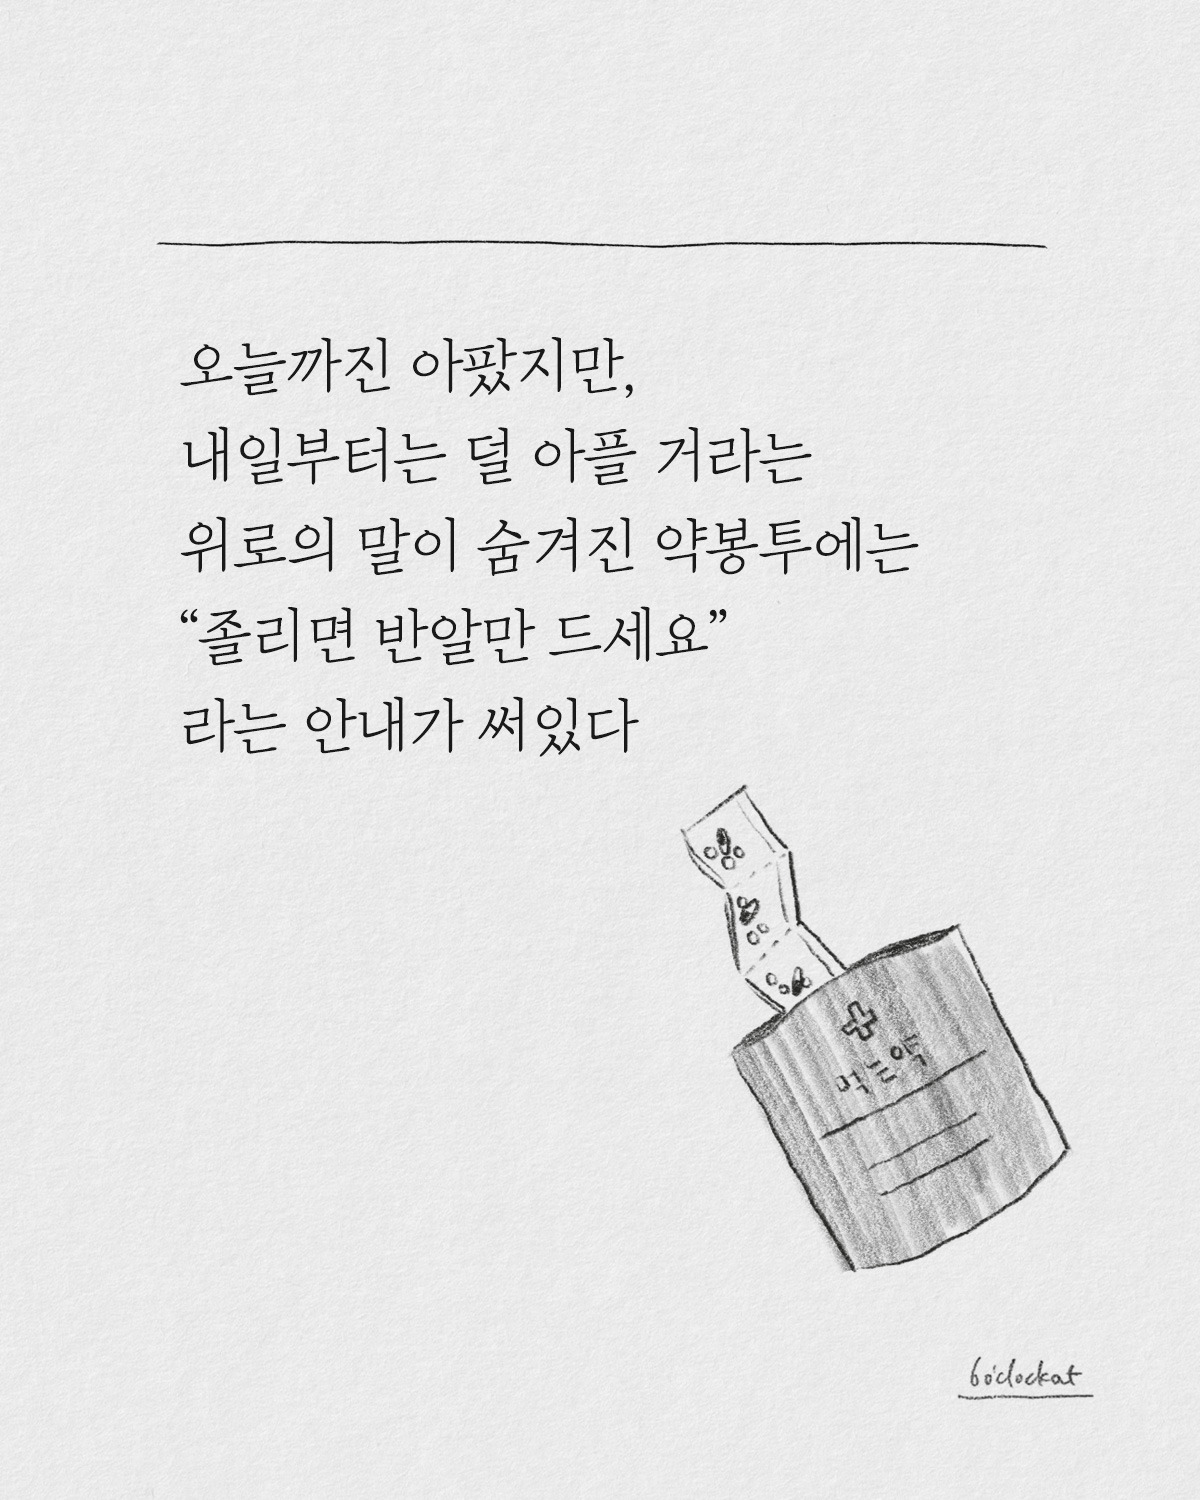 오늘까진 아팠지만,
내일부터는 덜 아플 거라는
위로의 말이 숨겨진 약봉투에는
“졸리면 반알만 드세요”
라는 안내가 써있다
먹는약
6o'clockat